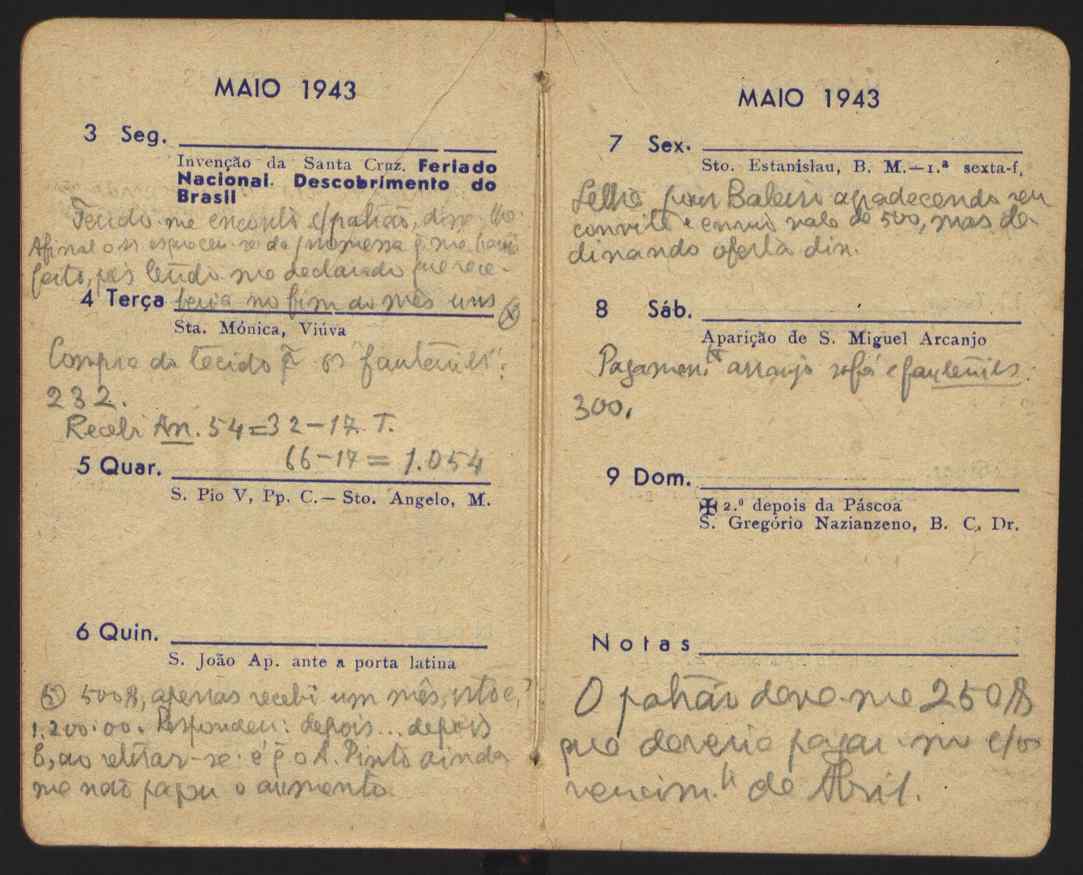 MAIO 1943
3 Seg.
Invenção da Santa Cruz. Feriado
Nacional. Descobrimento do
Brasil
me encontro c/patrão, disse-lhe:
Afinal o sr esqueceu-se da promessa q̃ me havia
feito, pois tendo me declarado que rece-
4 Terça beria no fim do mês uns (x)
Sta. Mónica, Viúva
Compra do tecido p̃ os "fauteuils":
232.
Recebi An. 54=32-17. T.
5 Quar. 66-17= 1.054
S. Pio V, Pp. C.— Sto. Angelo, M.
6 Quin.
S. João Ap. ante a porta latina
(x) 500$, apenas recebi um mês, isto é,
1.200.00. Respondeu: depois... depois
E, ao retirar-se: é q̃ o A. Pinto ainda
me não pagou o aumento.
MAIO 1943
7 Sex.
Sto. Estanislau, B. M.—1.ª sexta-f.
Baleiro agradecendo seu
convite e envio vale de 500, mas de-
clinando oferta din.
8 Sáb.
Aparição de S. Miguel Arcanjo
Pagamento arranjo sofá e fauteuils:
300.
9 Dom.
✠ 2.º depois da Páscoa
S. Gregório Nazianzeno, B. C. Dr.
Notas
O patrão deve-me 250$
que deveria pagar-me c/os
vencim.tos de Abril.